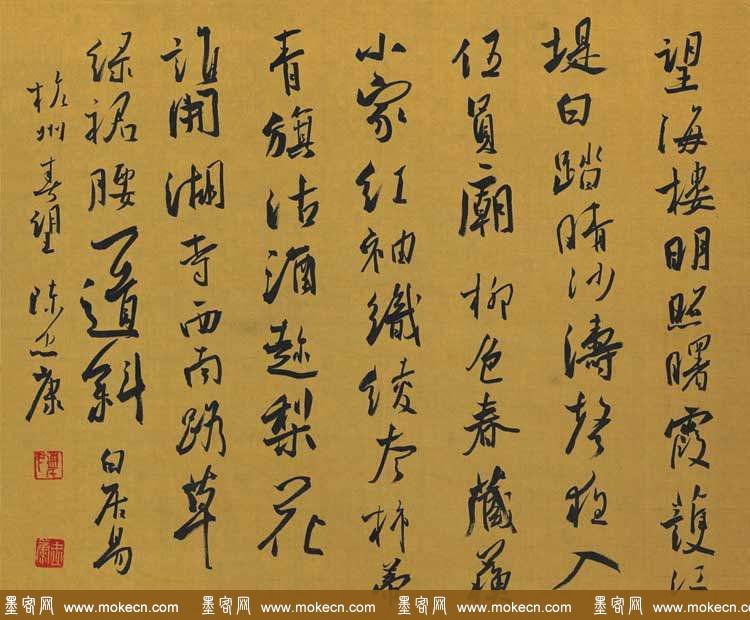 望海楼明照曙霞護江
堤白踏晴沙濤聲夜入
伍員廟柳色春藏蘇
小家红袖織绫夸柿蒂
青旗沽酒趁梨花
誰開湖寺西南路草
绿裙腰一道斜 白居易
杭州春望 陈忠康
墨客网 www.mokecn.com 墨客网 www.mokecn.com 墨客网 www.mokecn.com